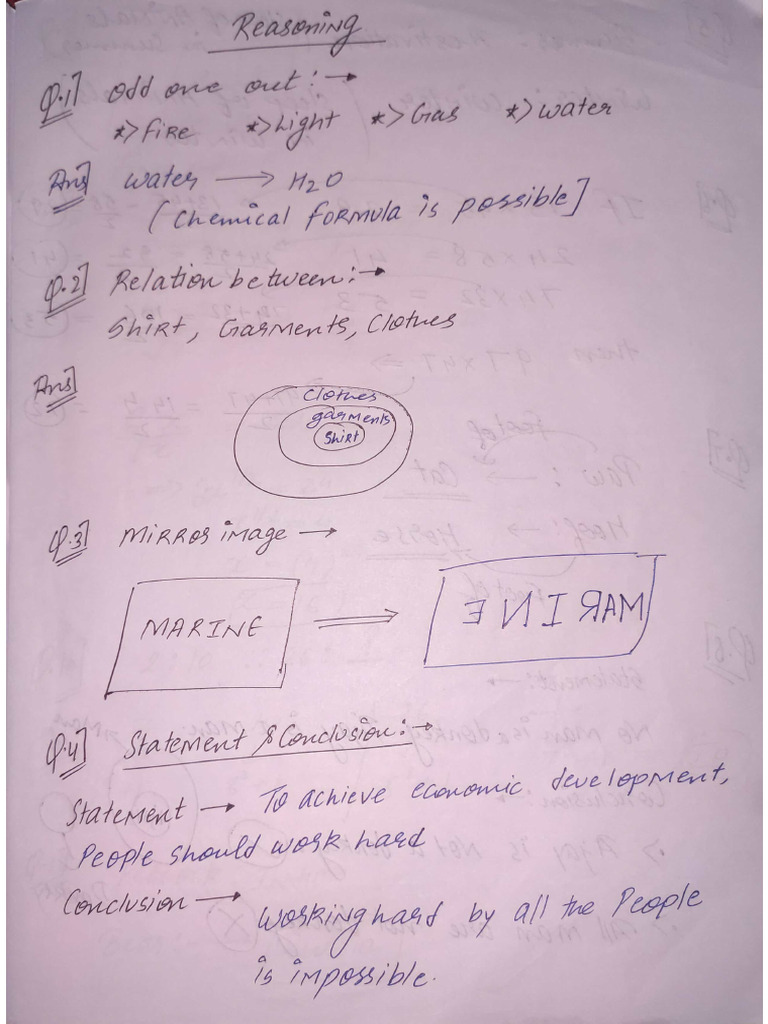 Reasoning
Q.1] Odd one out :→
*> Fire *> Light *> Gas *> Water
Ans] Water → H2O
(Chemical formula is possible]
Q.2] Relation between :→
Shirt, Garments, Clothes
Ans]
Clothes
garments
Shirt
Q.3] Mirror image →
MARINE ⇒ ƎИIЯAM
Q.4] Statement & Conclusion :→
Statement → To achieve economic development,
People should work hard
Conclusion → Working hard by all the People
is impossible.